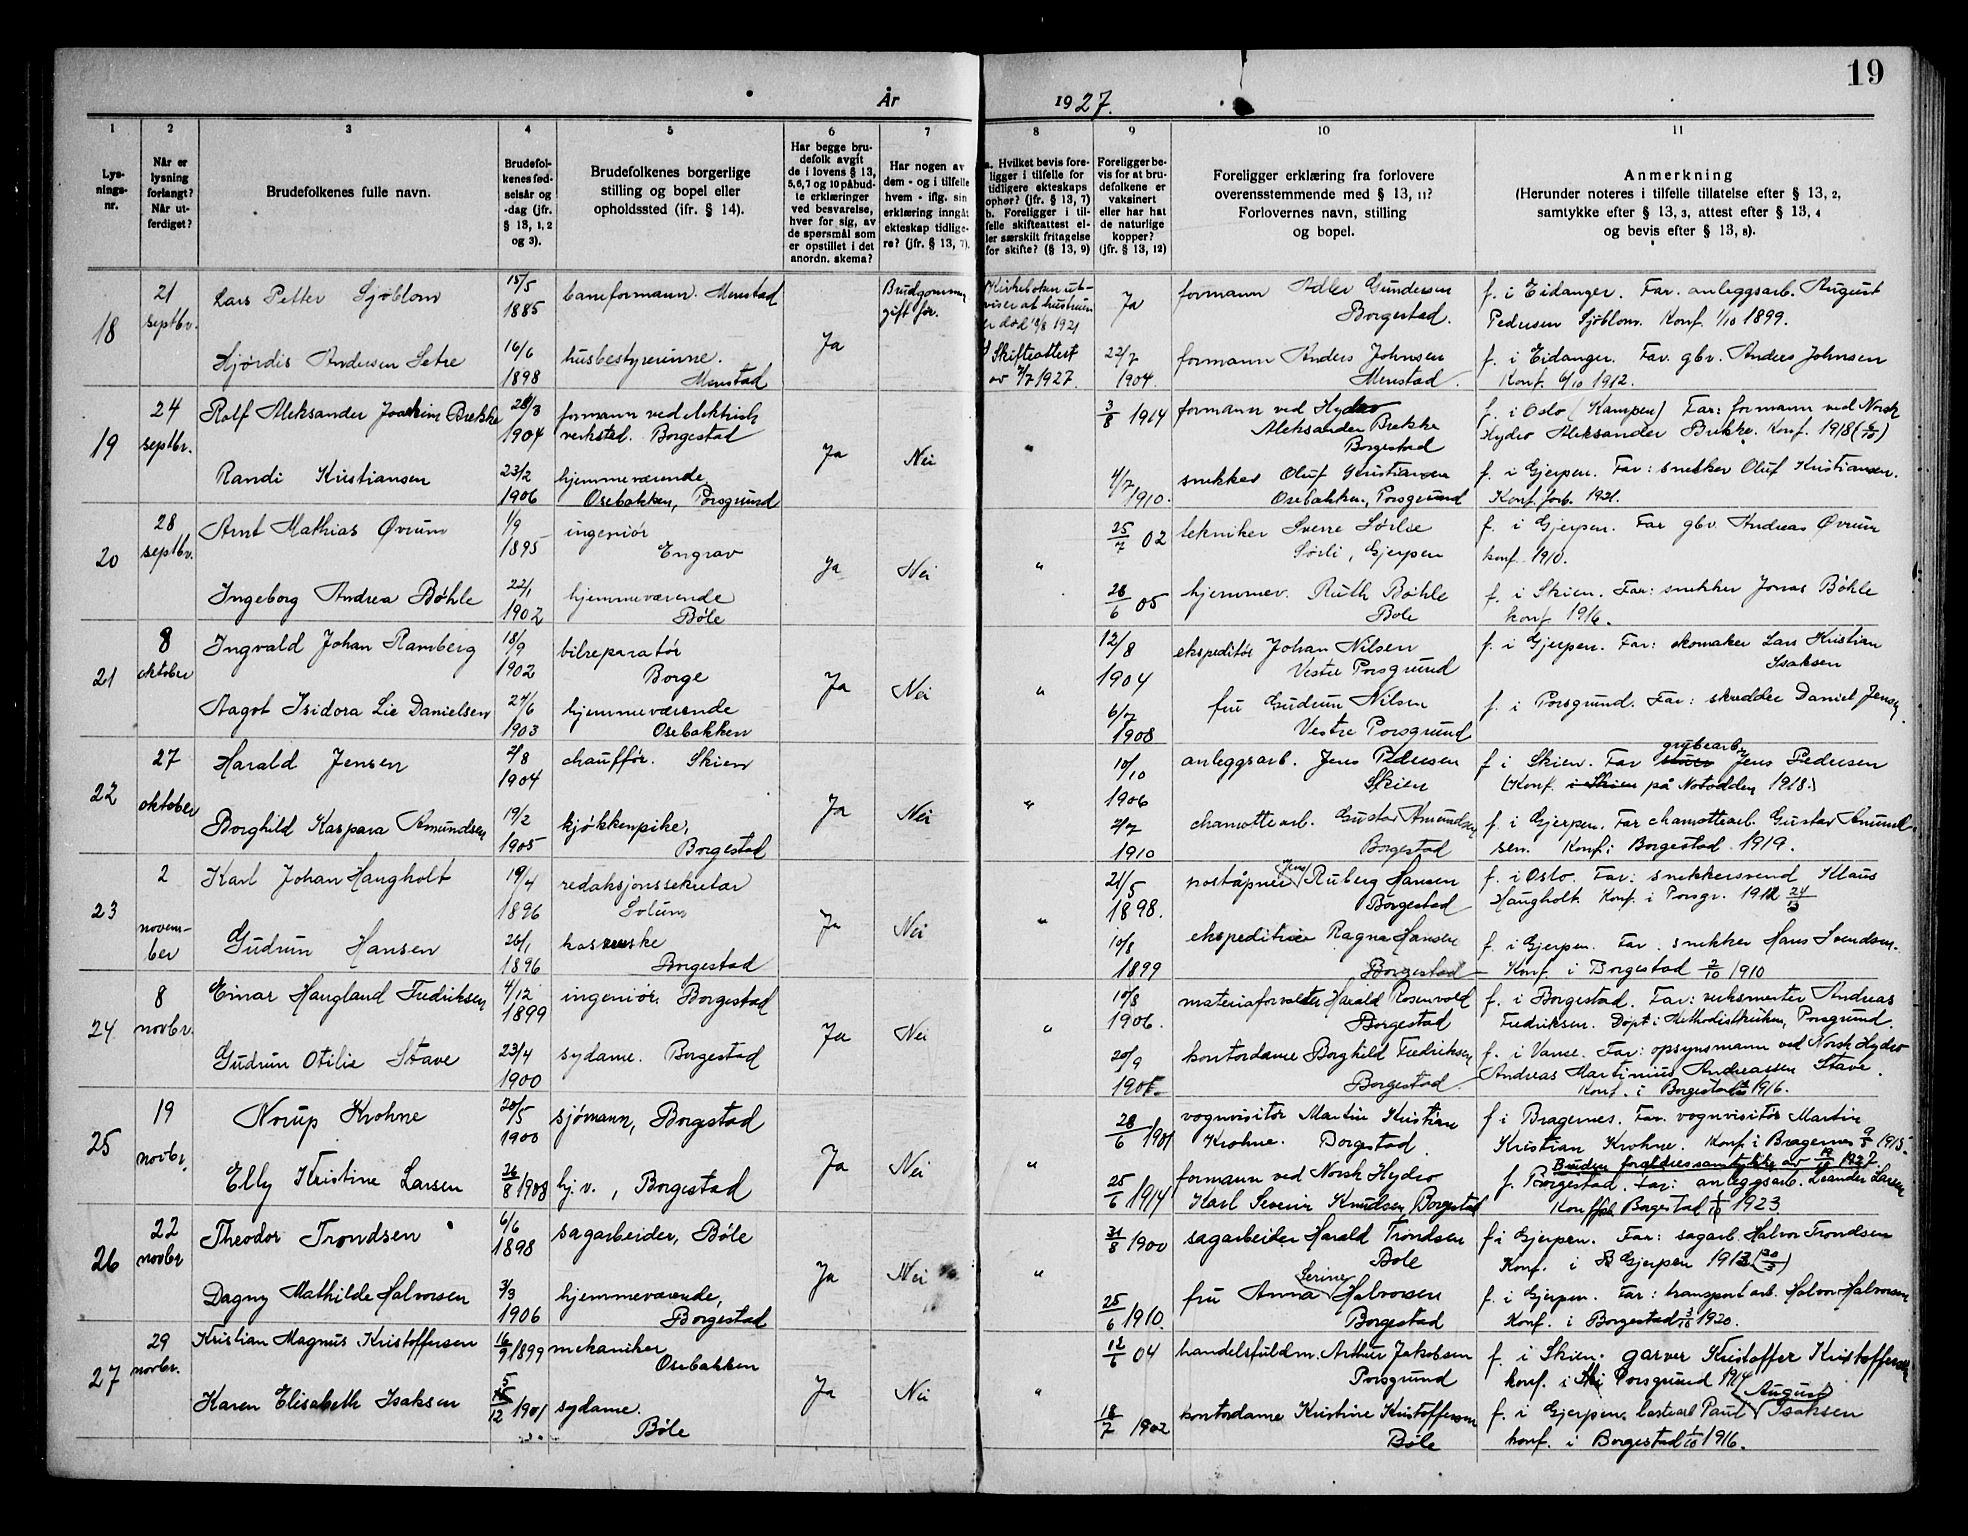 19
År 1927.
1 2 3 4 5 6 7 8 9 10 11
Lysnings-nr.
Når er lysning forlangt? Når utferdiget?
Brudefolkenes fulle navn.
Brudefolkenes fødselsår og -dag (jfr. § 13, 1, 2 og 3).
Brudefolkenes borgerlige stilling og bopel eller opholdssted (ifr. § 14).
Har begge brudefolk avgit de i lovens § 13, 5, 6, 7 og 10 påbudte erklæringer ved besvarelse, hver for sig, av de spørsmål som er opstillet i det anordn. skema?
Har nogen av dem - og i tilfelle hvem - iflg. sin erklæring inngått ekteskap tidligere? (jfr. § 13, 7).
a. Hvilket bevis foreligger i tilfelle for tidligere ekteskaps ophør? (jfr. § 13, 7) b. Foreligger i tilfelle skifteattest eller særskilt fritagelse for skifte? (§ 13, 9)
Foreligger bevis for at brudefolkene er vaksinert eller har hat de naturlige kopper? (jfr. § 13, 12)
Foreligger erklæring fra forlovere overensstemmende med § 13, 11? Forlovernes navn, stilling og bopel.
Anmerkning (Herunder noteres i tilfelle tillatelse efter § 13, 2, samtykke efter § 13, 3, attest efter § 13, 4 og bevis efter § 13, 8).
18 21 septbr. Lars Petter Sjøblom 15/5 1885 baneformann. Menstad Ja Brudgommen gift før. Kirkeboken utviser at hustruen er død 13/8 1921 Ja formann Adler Gundersen Borgestad. f. i Eidanger. Far. anleggsarb. August Pedersen Sjøblom. Konf. 1/10 1899.
Hjørdis Andersen Setre 16/6 1898 husbestyrerinne. Menstad Skifteattest av 7/7 1927. 22/7 1904. formann Anders Johnsen Menstad. f. i Eidanger. Far. gbr. Anders Johnsen Konf. 6/10 1912.
19 24 septbr. Rolf Aleksander Joakim Brekke 28/3 1904 formann ved elektrisk verksted. Borgestad Ja Nei " 3/8 1914 formann ved Hydro Aleksander Brekke Borgestad f. i Oslo (Kampen) Far: formann ved Norsk Hydro Aleksander Brekke. Konf. 1918 (6/10)
Randi Kristiansen 23/2 1906 hjemmeværende Osebakken, Porsgrund 4/7 1910. snekker Oluf Kristiansen Osebakken, Porsgrund f. i Gjerpen. Far: snekker Oluf Kristiansen. Konf. forb. 1921.
20 28 septbr. Arnt Mathias Øvrum 1/9 1895 ingeniør Engrav Ja Nei " 25/7 02 tekniker Sverre Sørlie Sørli, Gjerpen f. i Gjerpen. Far gbr. Andreas Øvrum konf. 1910.
Ingeborg Andrea Bøhle 22/1 1902 hjemmeværende Bøle 28/6 05 hjemmev. Ruth Bøhle Bøle f. i Skien. Far: snekker Jonas Bøhle konf 1916.
21 8 oktober Ingvald Johan Ramberg 18/9 1902 bilreparatør Borge Ja Nei " 12/8 1904 ekspeditør Johan Nilsen Vestre Porsgrund f. i Gjerpen. Far: skomaker Lars Kristian Isaksen
Aagot Isidora Lie Danielsen 27/6 1903 hjemmeværende Osebakken 6/7 1908 fru Gudrun Nilsen Vestre Porsgrund f. i Porsgrund. Far: skredder Daniel Jensen.
22 27 oktober Harald Jensen 2/8 1904 chauffør. Skien Ja Nei " 10/10 1906 anleggsarb. Jens Pedersen Skien f. i Skien. Far grubearb. Jens Pedersen (Konf. i Skien på Notodden 1918.)
Borghild Kaspara Amundsen 19/2 1905 kjøkkenpike, Borgestad 2/7 1910 chamottearb. Gustav Amundsen Borgestad f. i Gjerpen. Far chamottearb. Gustav Amundsen. Konf. i Borgestad 1919.
23 2 november Karl Johan Haugholt 19/4 1896 redaksjonssekretær Solum Ja Nei " 21/5 1898. poståpner Jens Ruberg Hansen Borgestad f. i Oslo. Far: snekkersvend Klaus Haugholt. Konf. i Porsgr. 1912
Gudrun Hansen 26/1 1896 Borgestad 10/8 1899 ekspeditrise Ragna Hansen Borgestad f. i Gjerpen. Far. snekker Hans Svendsen. Konf. i Borgestad 2/10 1910
24 8 novbr. Einar Haugland Fredriksen 4/12 1899 ingeniør. Borgestad Ja Nei " 10/8 1906. materialforvalter Harald Rosenvold Borgestad f. i Borgestad. Far: verksmester Andreas Fredriksen. Døpt i Methodistkirken, Porsgrund.
Gudrun Otilie Stave 23/4 1900 sydame. Borgestad 20/9 kontordame Borghild Fredriksen Borgestad f. i Vanse. Far: opsynsmann ved Norsk Hydro Andreas Martinius Andreassen Stave. Konf. i Borgestad 1916.
25 19 novbr. Norup Krohne 20/5 1900 sjømann, Borgestad Ja Nei " 28/6 1901 vognvisitør Martin Kristian Krohne. Borgestad. f i Bragernes. Far. vognvisitør Martin Kristian Krohne. Konf. i Bragernes 9/5 1915.
Elly Kristine Larsen 26/8 1908 hj.v., Borgestad 25/6 1914 formann ved Norsk Hydro Karl Severin Knudsen, Borgestad Bruden foreldressamtykke av 1927 f. Borgestad. Far: anleggsarb. Leander Larsen Konf. Borgestad 1/10 1923
26 22 novbr Theodor Trondsen 6/6 1898 sagarbeider, Bøle Ja Nei " 31/8 1900 sagarbeider Harald Trondsen Bøle f i Gjerpen. Far: sagarb. Halvor Trondsen Konf. i Gjerpen 1913
Dagny Mathilde Halvorsen 3/3 1906 hjemmeværende, Borgestad 25/6 1910. fru Anna Serine Halvorsen Borgestad f. i Gjerpen. Far: transportarb. Halvor Halvorsen Konf. i Borgestad 3/10 1920.
27 29 novbr. Kristian Magnus Kristoffersen 16/9 1899 mekaniker Osebakken Ja Nei " 12/6 04 handelsfuldm. Arthur Jakobsen Porsgrund f. i Skien. garver Kristoffer Kristoffersen konf. i Porsgrund 1914
Karen Elisabeth Isaksen 5/12 1901 sydame. Bøle 18/7 1902 kontordame Kristine Kristoffersen Bøle f. i Gjerpen. lastearb Paul (August) Isaksen konf. i Borgestad 1/10 1916.